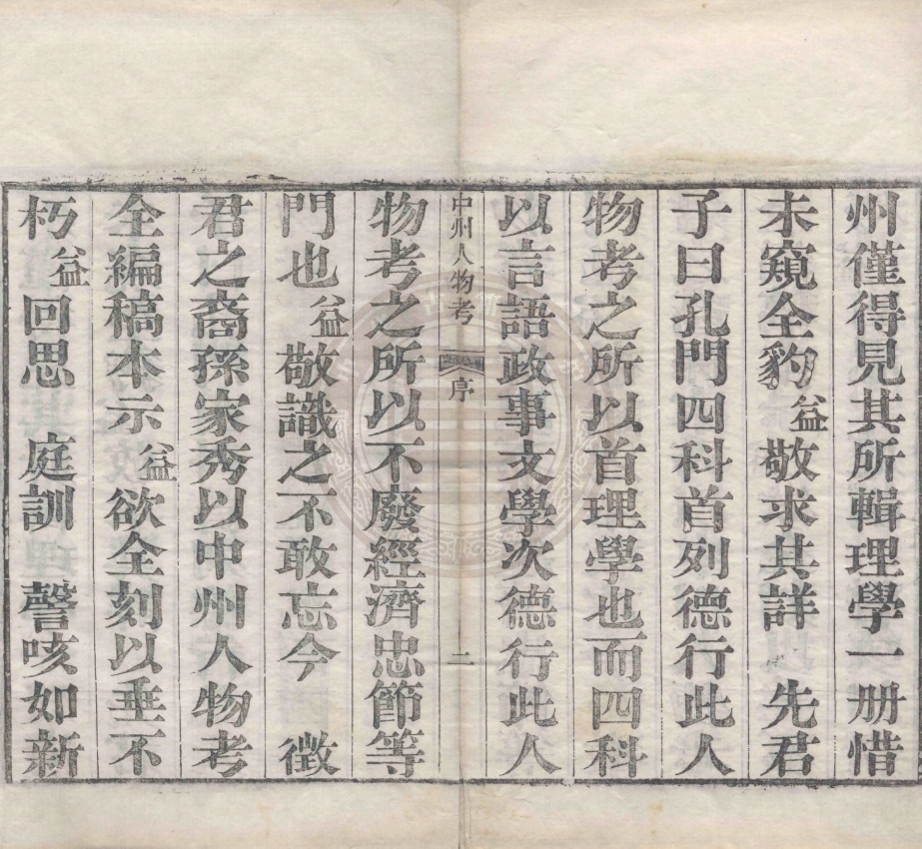 州僅得見其所輯理學一册惜
未窺全豹益敬求其詳　先君
子曰孔門四科首列德行此人
物考之所以首理學也而四科
以言語政事文學次德行此人
中州人物考　序　二
物考之所以不廢經濟忠節等
門也益敬識之不敢忘今　徵
君之裔孫家秀以中州人物考
全編稿本示益欲全刻以垂不
朽益回思　庭訓　謦咳如新